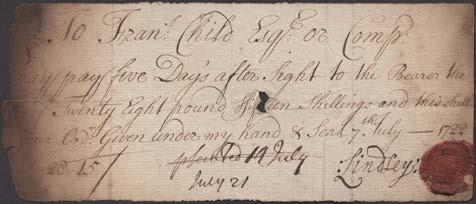 To Fran.s Child Esq.r or Comp.
pay five Day's after Sight to the Bearer the
Twenty Eight pound fifteen Shillings and this shall
Ord.r Given under my hand & Seal 7.th July — 172
28:15
14 July
July 21
Lindsey